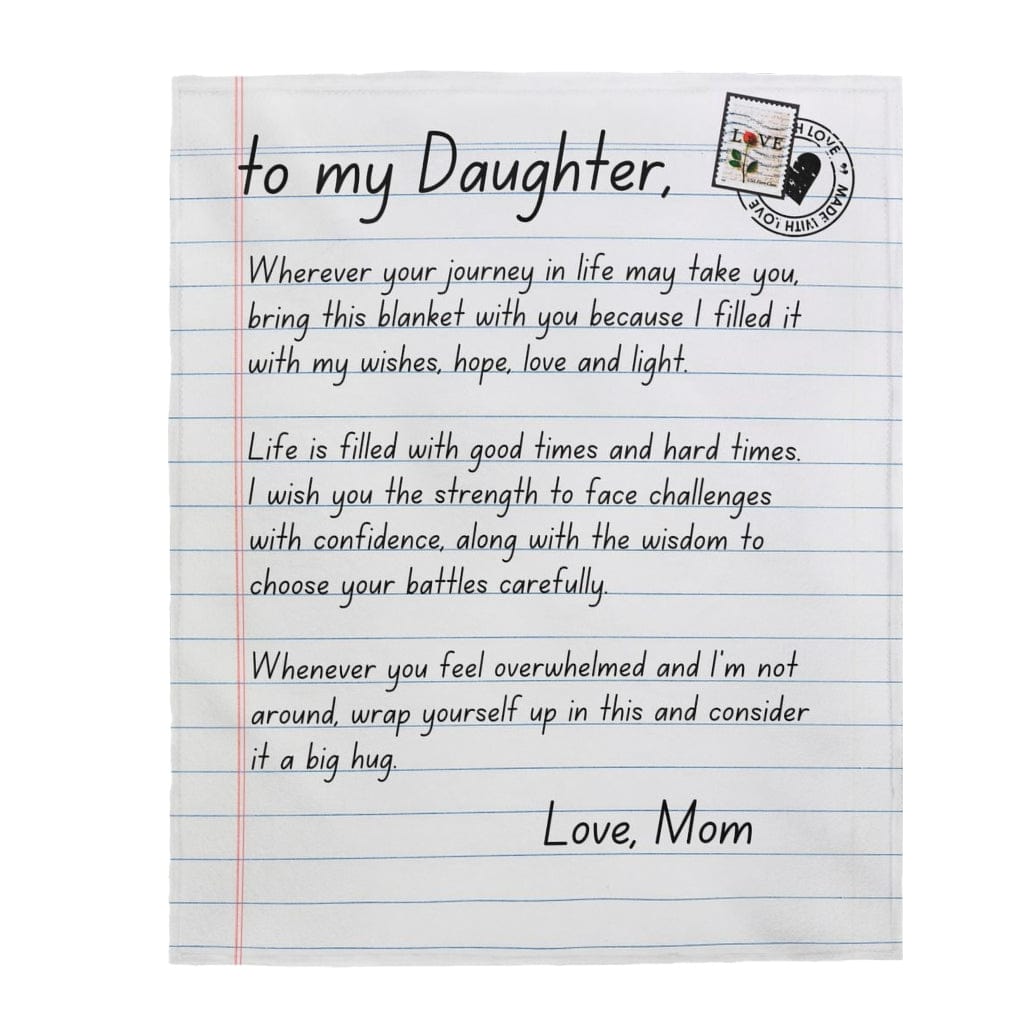 to my Daughter,
LOVE
H LOVE
MADE WITH LOVE
Wherever your journey in life may take you,
bring this blanket with you because I filled it
with my wishes, hope, love and light.
Life is filled with good times and hard times.
I wish you the strength to face challenges
with confidence, along with the wisdom to
choose your battles carefully.
Whenever you feel overwhelmed and I'm not
around, wrap yourself up in this and consider
it a big hug.
Love, Mom